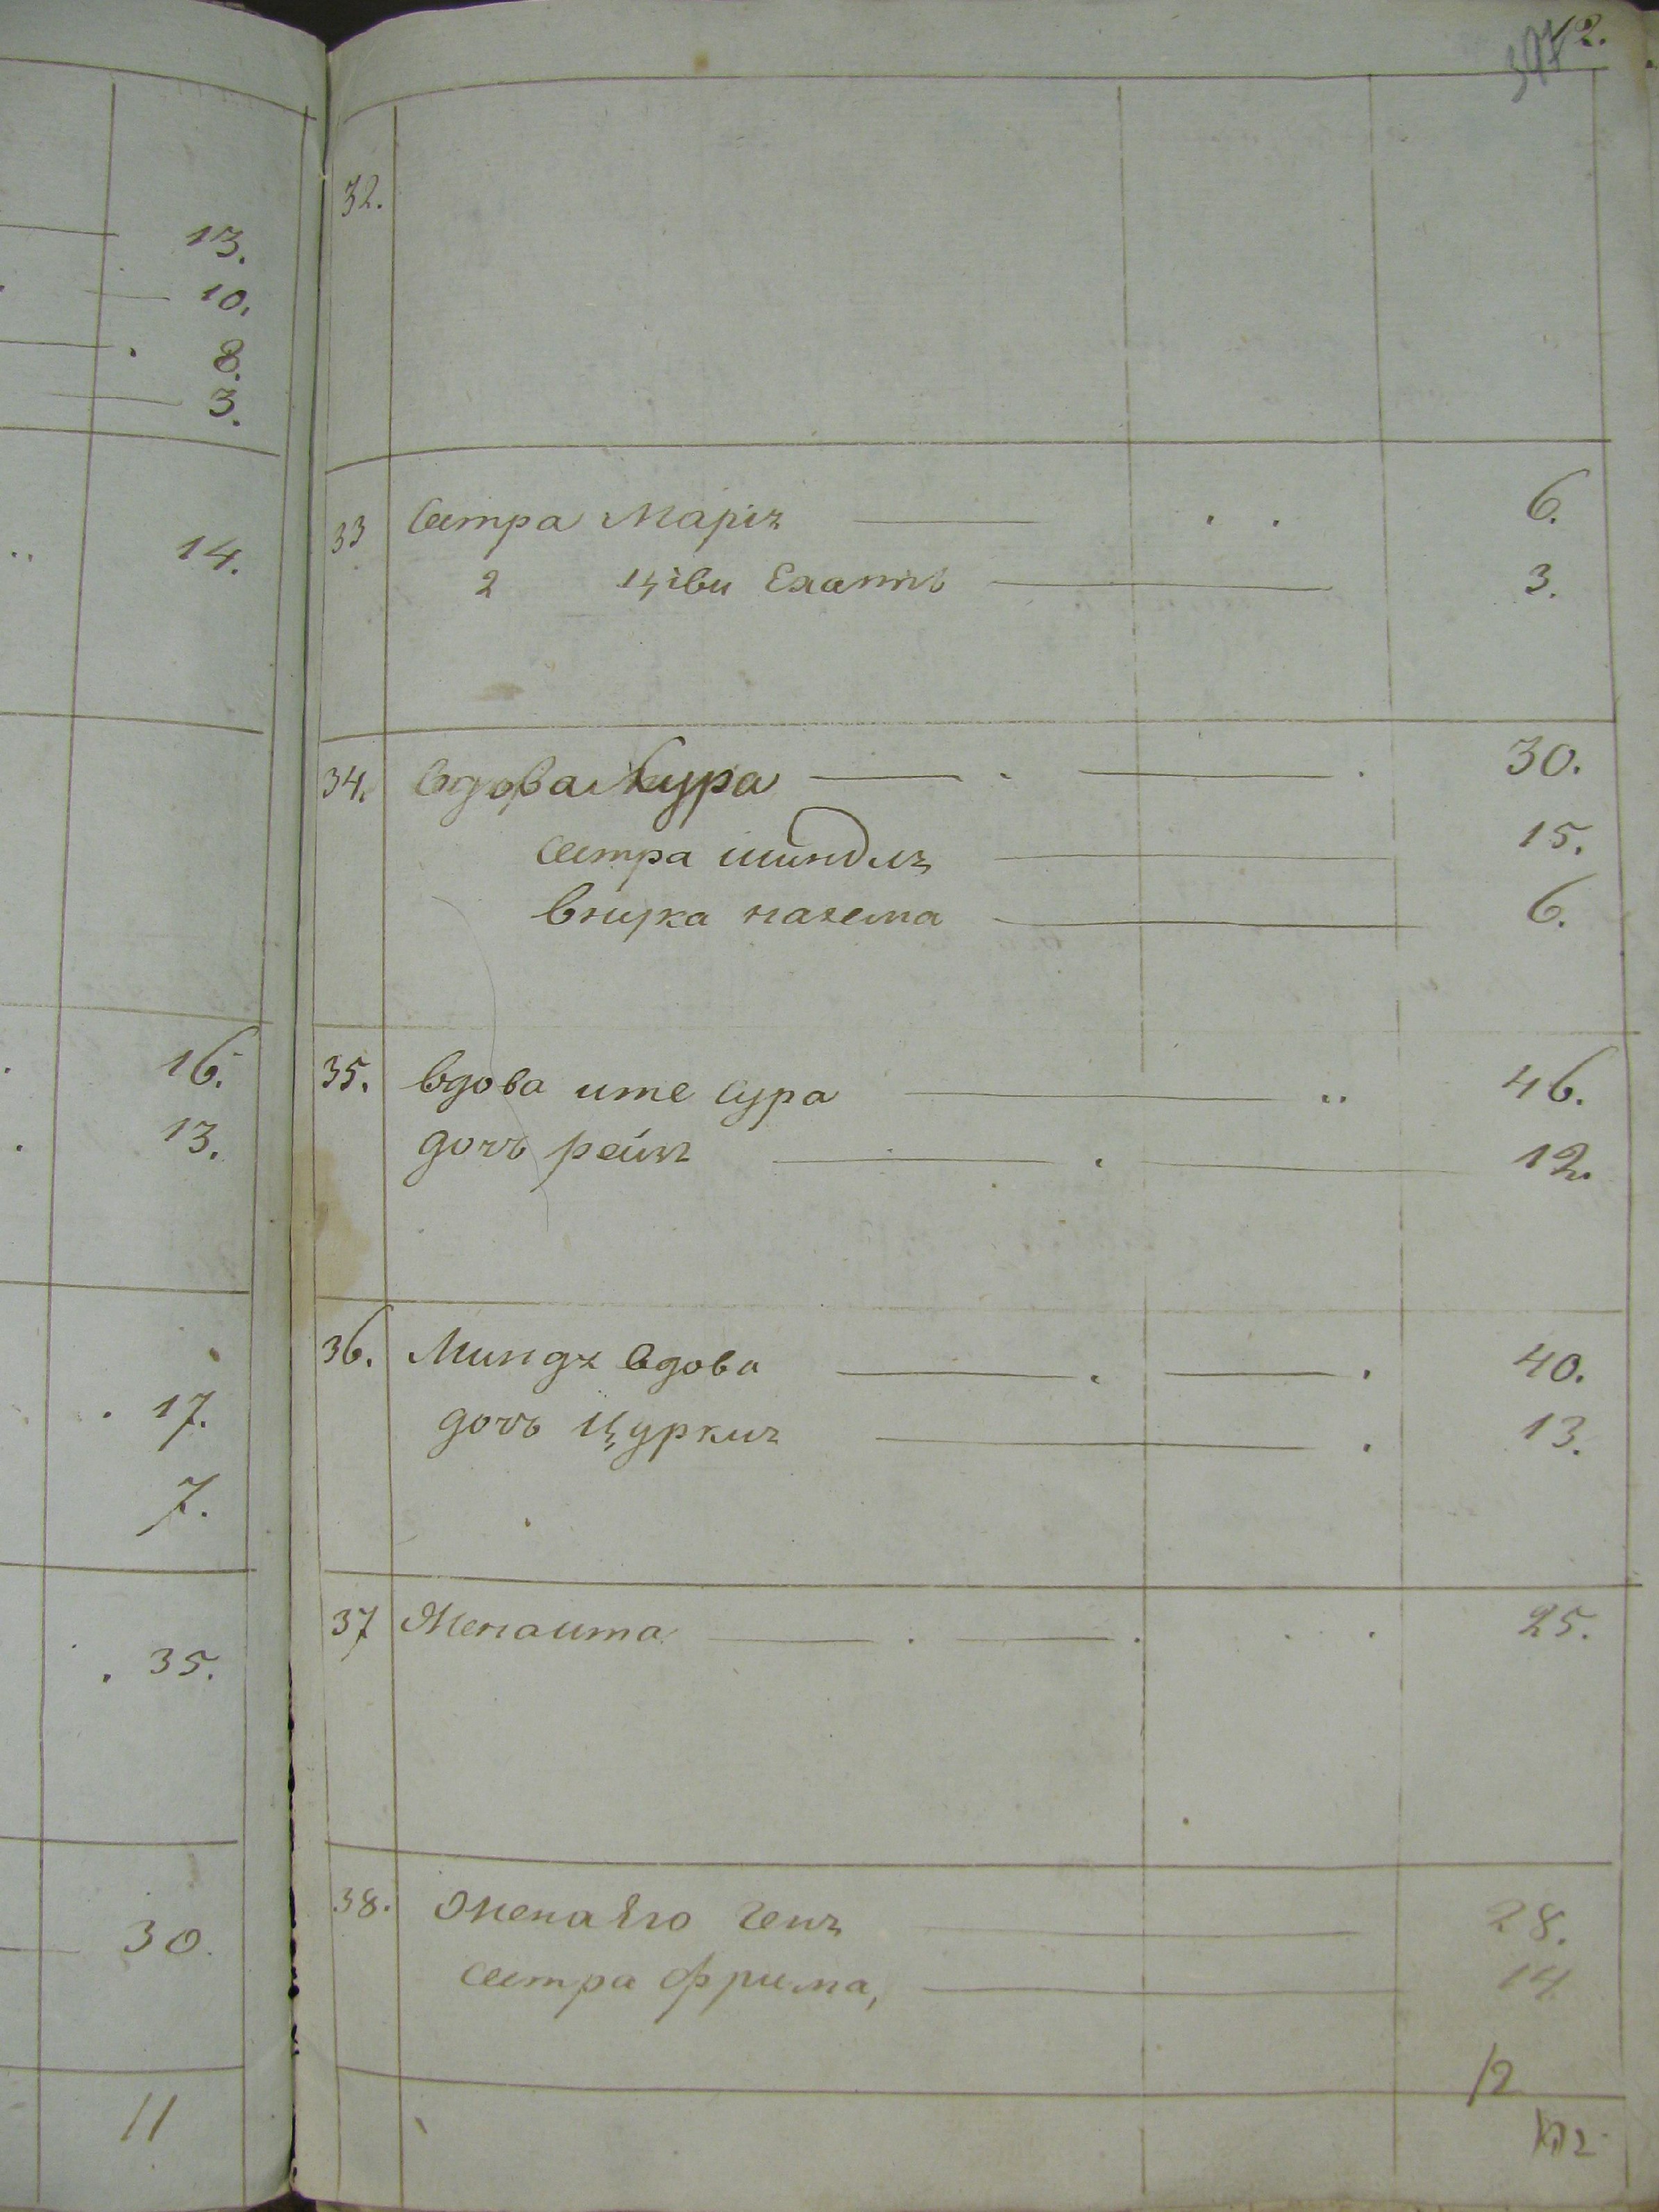 12.
13.
10.
8.
3.
14.
16.
13.
17.
7.
35.
30.
11
32.
33 Сестра Маріѧ 6.
2 Цѣви 3.
34. Вдова 30.
сестра шиндлѧ 15.
внука нахема 6.
35. вдова ите сура 46.
дочь рейзѧ 12.
36. Миндѧ вдова 40.
дочь Цуркиѧ 13.
37 Жена ита 25.
38. Жена Его генѧ 28.
сестра фрима, 14
12